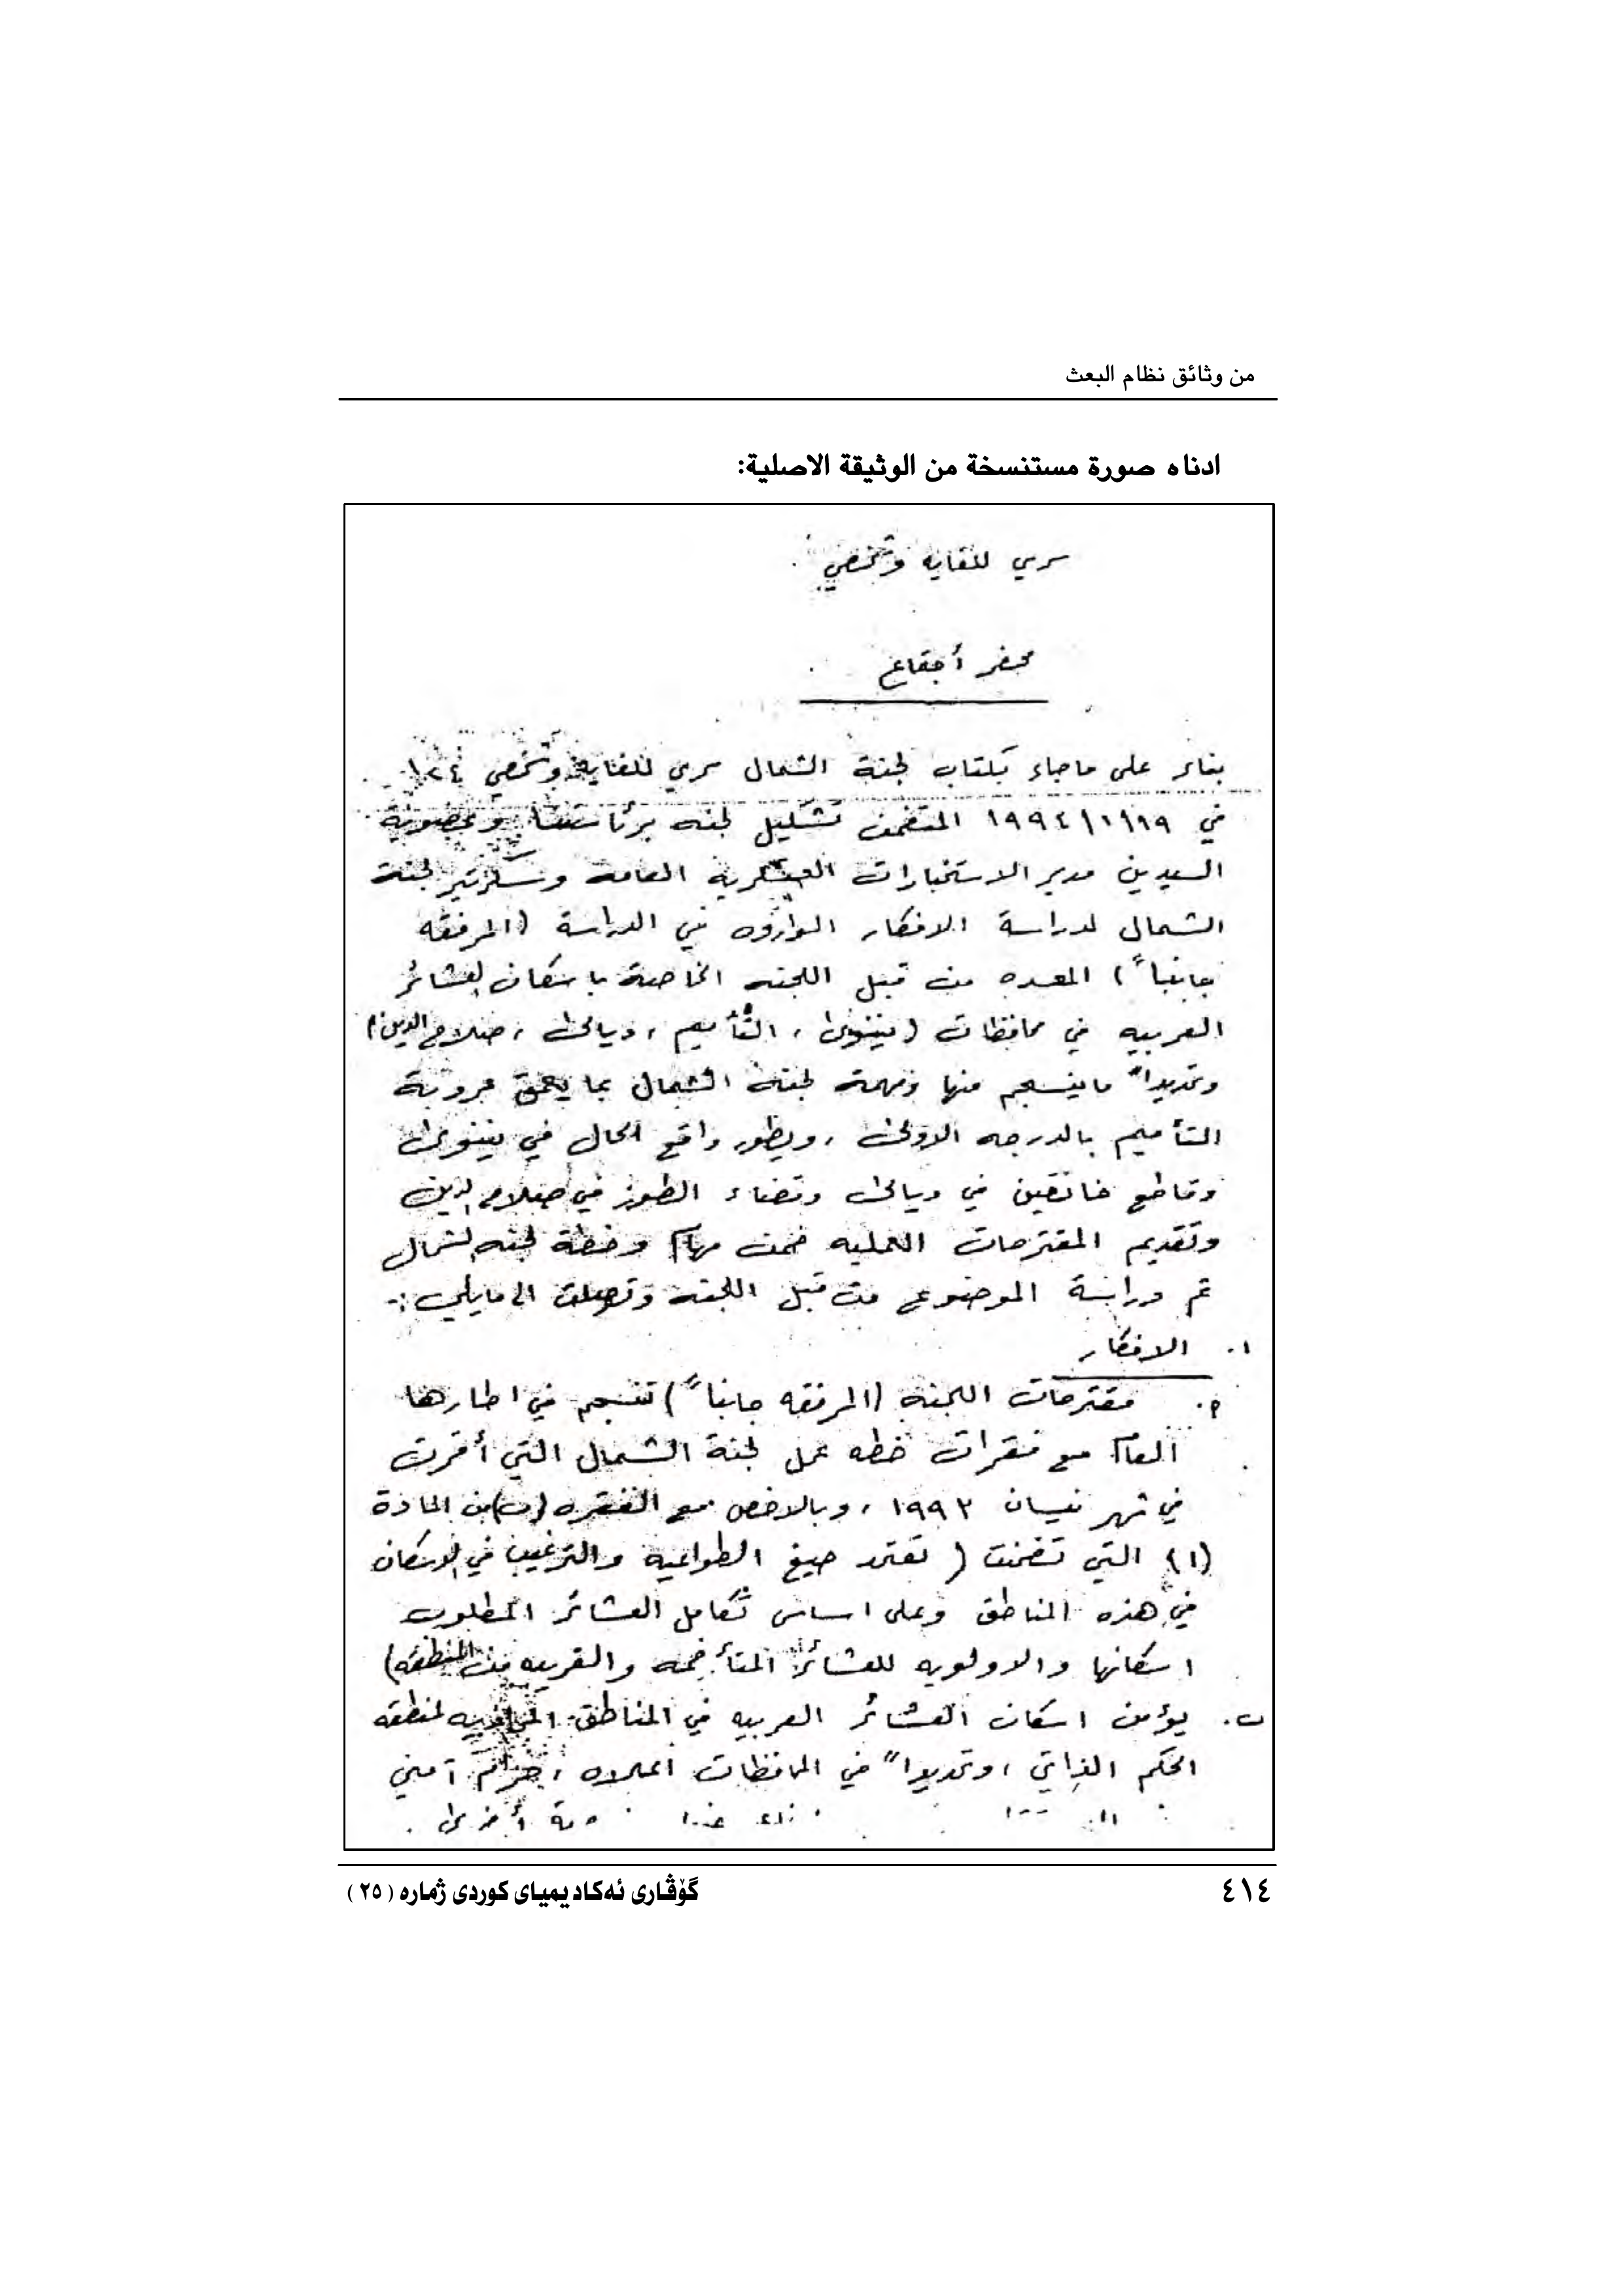 من وثائق نظام البعث
ادناه صورة مستنسخة من الوثيقة الاصلية:
سري للغايه وشخصي
محضر أجتماع
بناء على ماجاء بكتاب لجنة الشمال سري للغاية وشخصي ١٠٢٤
في ١٩٩٤/١/١٩ المتضمن تشكيل لجنه برئاستنا وعضوية
السيدين مدير الاستخبارات العسكريه العامه وسكرتير لجنة
الشمال لدراسة الافكار الوارده في الدراسة (المرفقه
جانباً) المعده من قبل اللجنه الخاصة باسكان العشائر
العربيه في محافظات (نينوى ، التأميم ، ديالى ، صلاح الدين)
وتحديداً ماينسجم منها ومهمة لجنة الشمال بما يعمق عروبة
التأميم بالدرجه الاولى ، ويطور واقع الحال في نينوى
وقاطع خانقين في ديالى وقضاء الطوز في صلاح الدين
وتقديم المقترحات العمليه ضمن مهام وخطة لجنه الشمال
تم دراسة الموضوع من قبل اللجنه وتوصلت الى مايلي :-
١. الافكار
أ. مقترحات اللجنة (المرفقه جانباً) تنسجم في اطارها
العام مع فقرات خطه عمل لجنة الشمال التي أقرت
في شهر نيسان ١٩٩٢ ، وبالاخص مع الفقره (ب) من المادة
(١) التي تضمنت ( تعتمد صيغ الطواعيه والترغيب في الاسكان
في هذه المناطق وعلى اساس تكامل العشائر المطلوب
اسكانها والاولويه للعشائر المتأخمه والقريبه من المنطقه)
ب. يؤمن اسكان العشائر العربيه في المناطق المحاذيه لمنطقه
الحكم الذاتي ، وتحديداً في المحافظات اعلاه ، حزام أمني
أخرى .
٤١٤
گۆڤاری ئەکادیمیای کوردی ژمارە (٢٥)